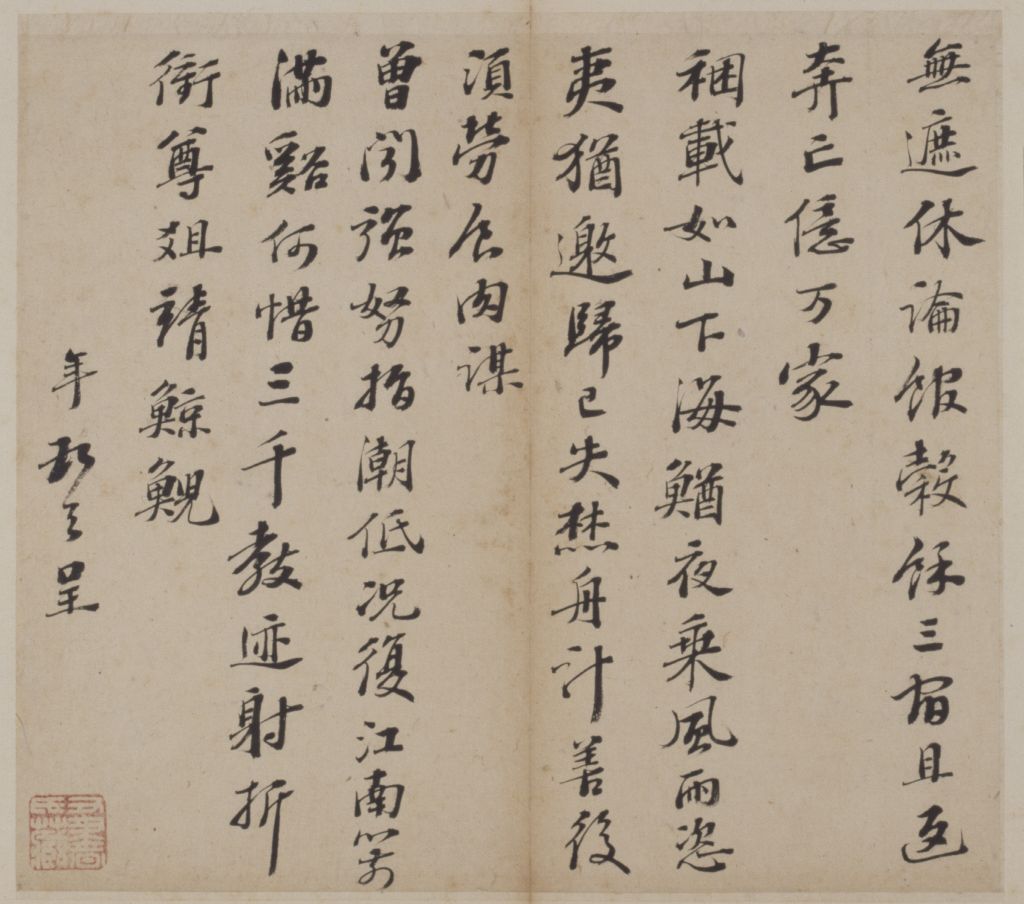 無遮休論館穀餘三宿且返
奔亡億万家
捆載如山下海鰌夜乘風雨恣
夷猶邀歸已失焚舟計善後
須勞食肉謀
曾聞強弩指潮低況復江南箭
滿谿何惜三千教迹射折
衝尊俎靖鯨鯢
年 呈